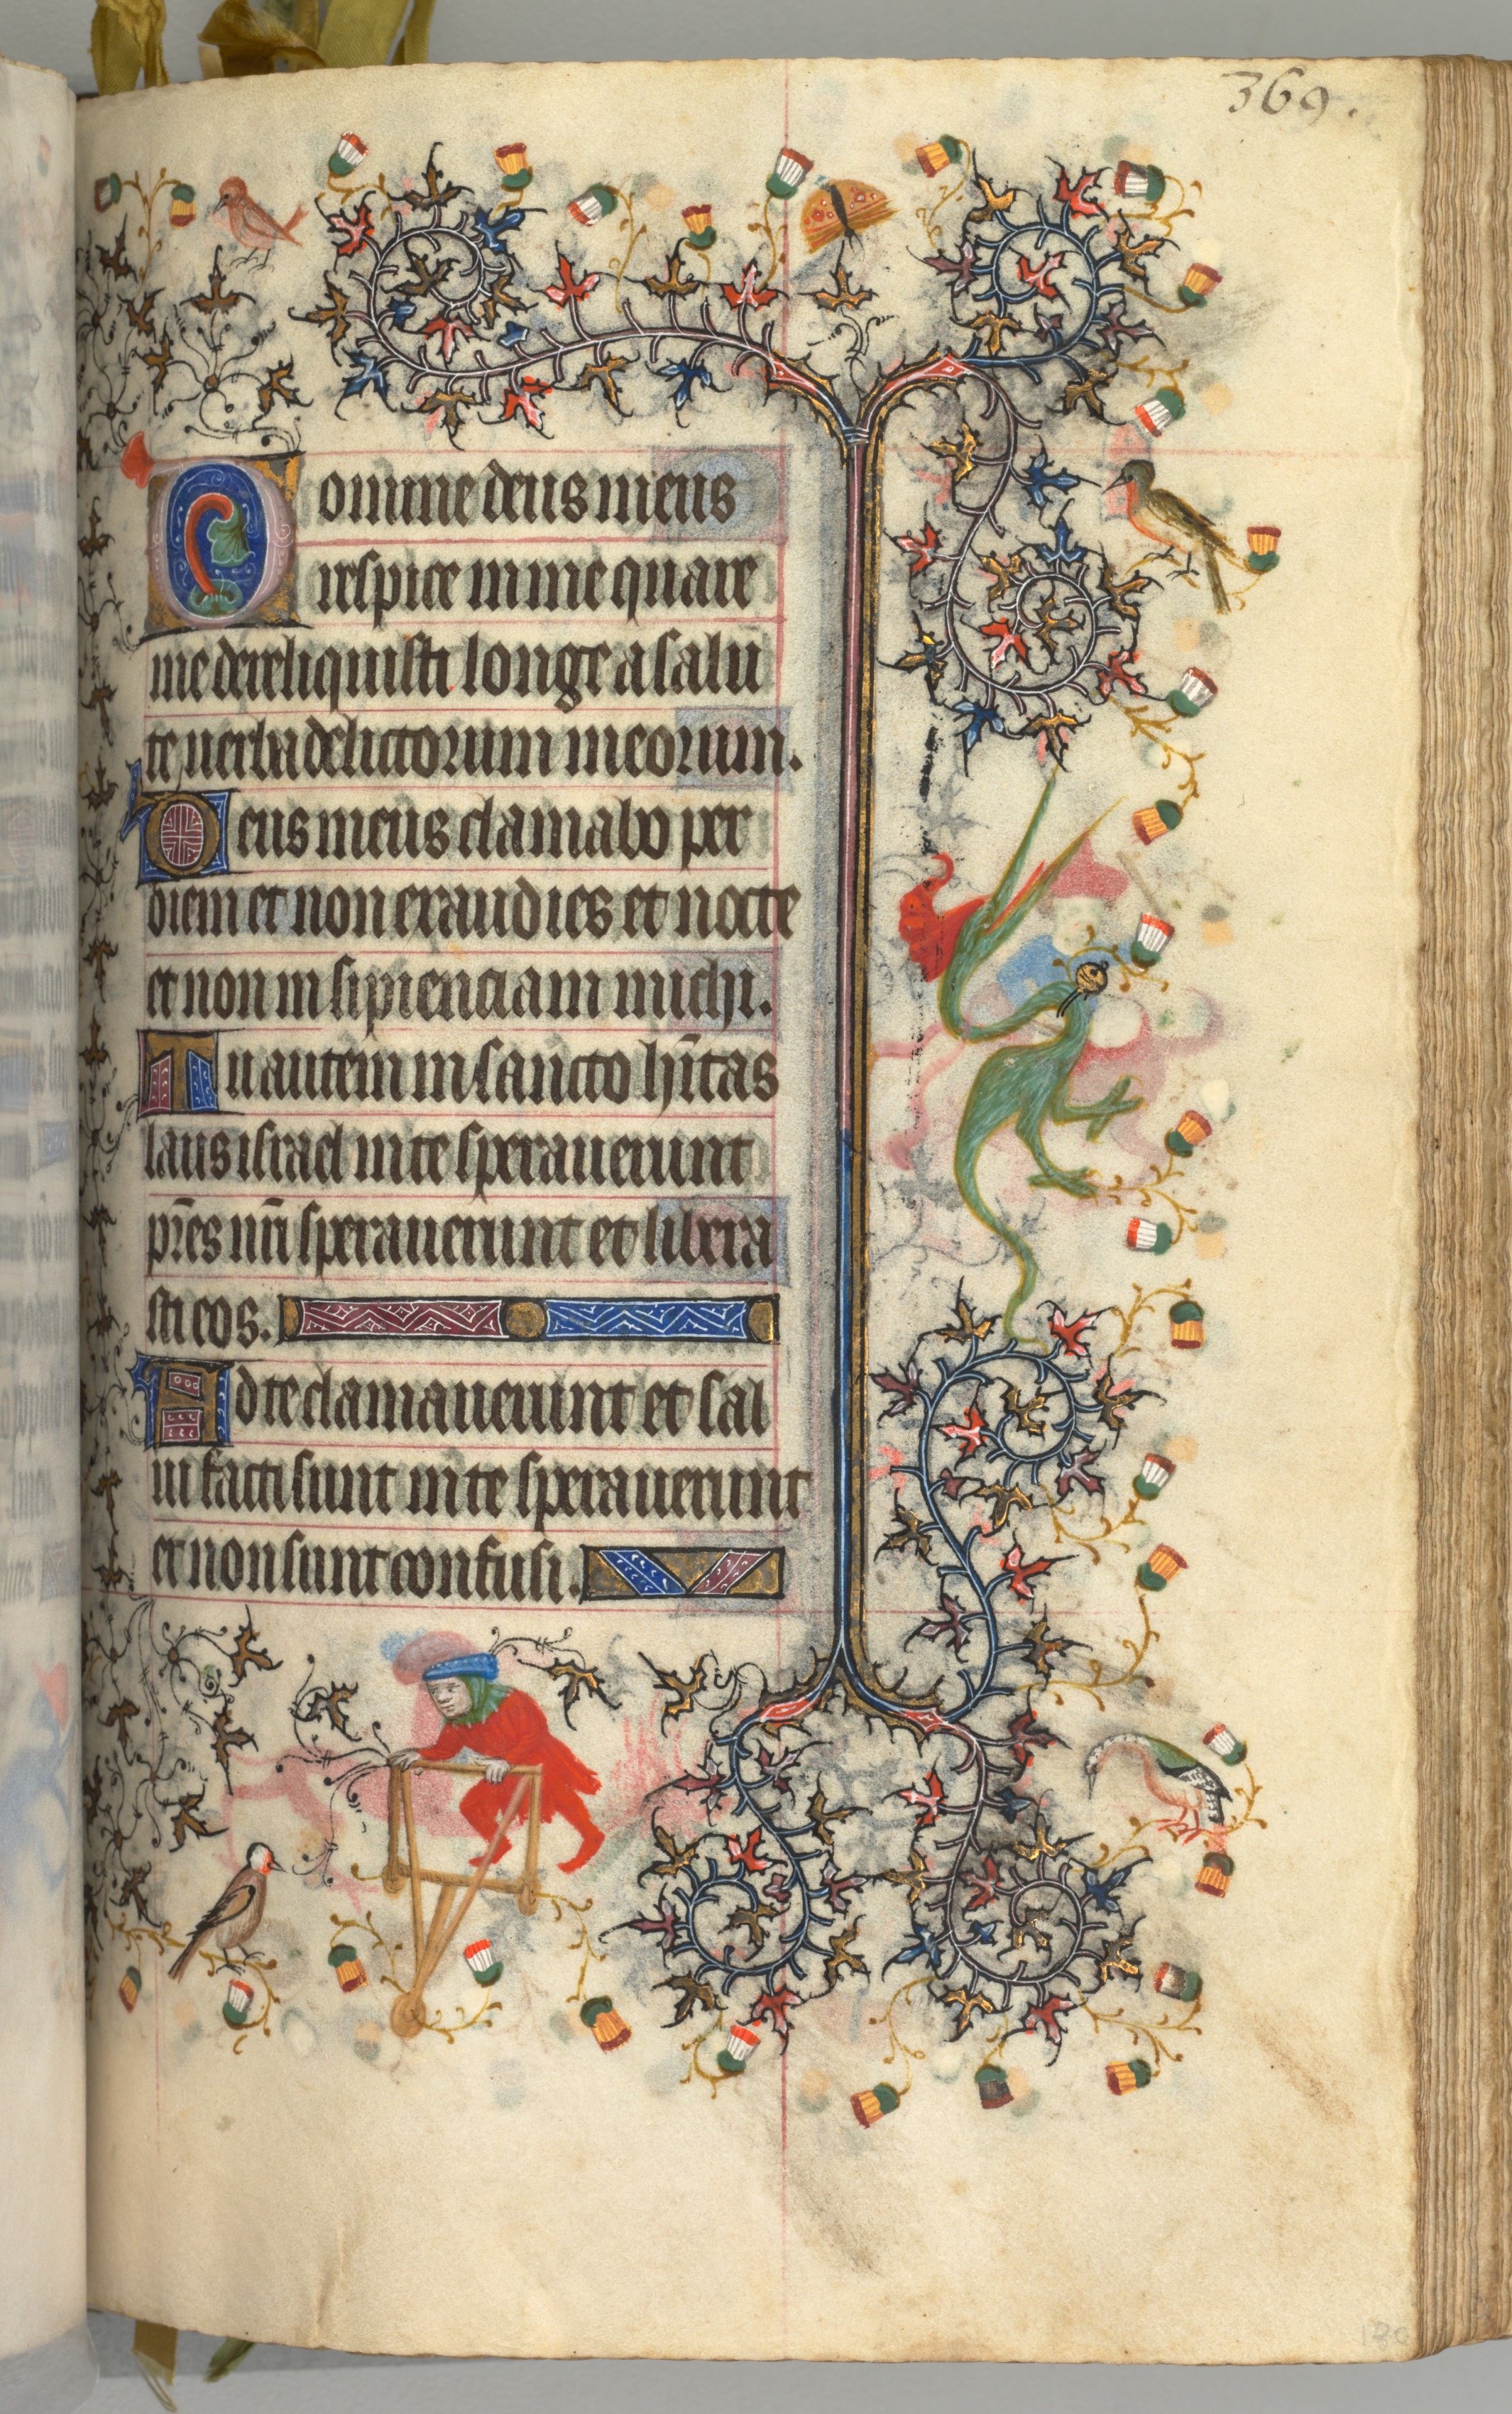 369.
Domine deus meus
respice in me quare
me dereliquisti longe a salu
te uerba delictorum meorum.
Deus meus clamabo per
diem et non exaudies et nocte
et non in sipienciam michi.
Tu autem in sancto hītas
laus israel in te sperauerunt
pr̄es nr̄i sperauerunt et libera
sti eos.
Ad te clamauerunt et sal
ui facti sunt in te sperauerunt
et non sunt confusi.